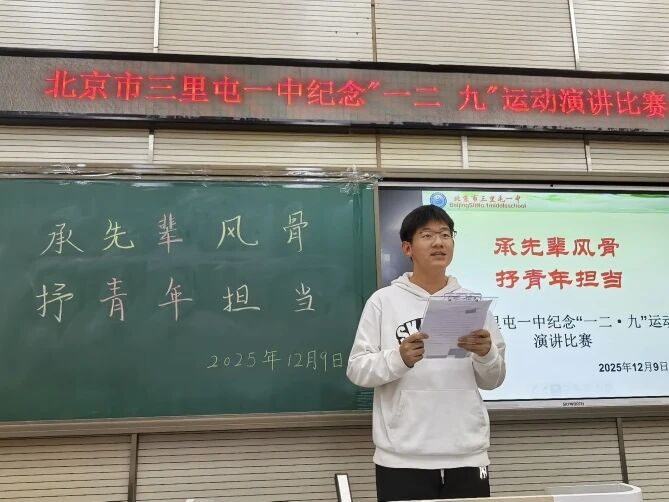 北京市三里屯一中纪念"一二 九"运动演讲比赛
承先辈风骨
抒青年担当
2025年12月9日
北京市三里屯一中
承先辈风骨
抒青年担当
里屯一中纪念“一二·九”运动
演讲比赛
2025年12月9日
SKYWORTH